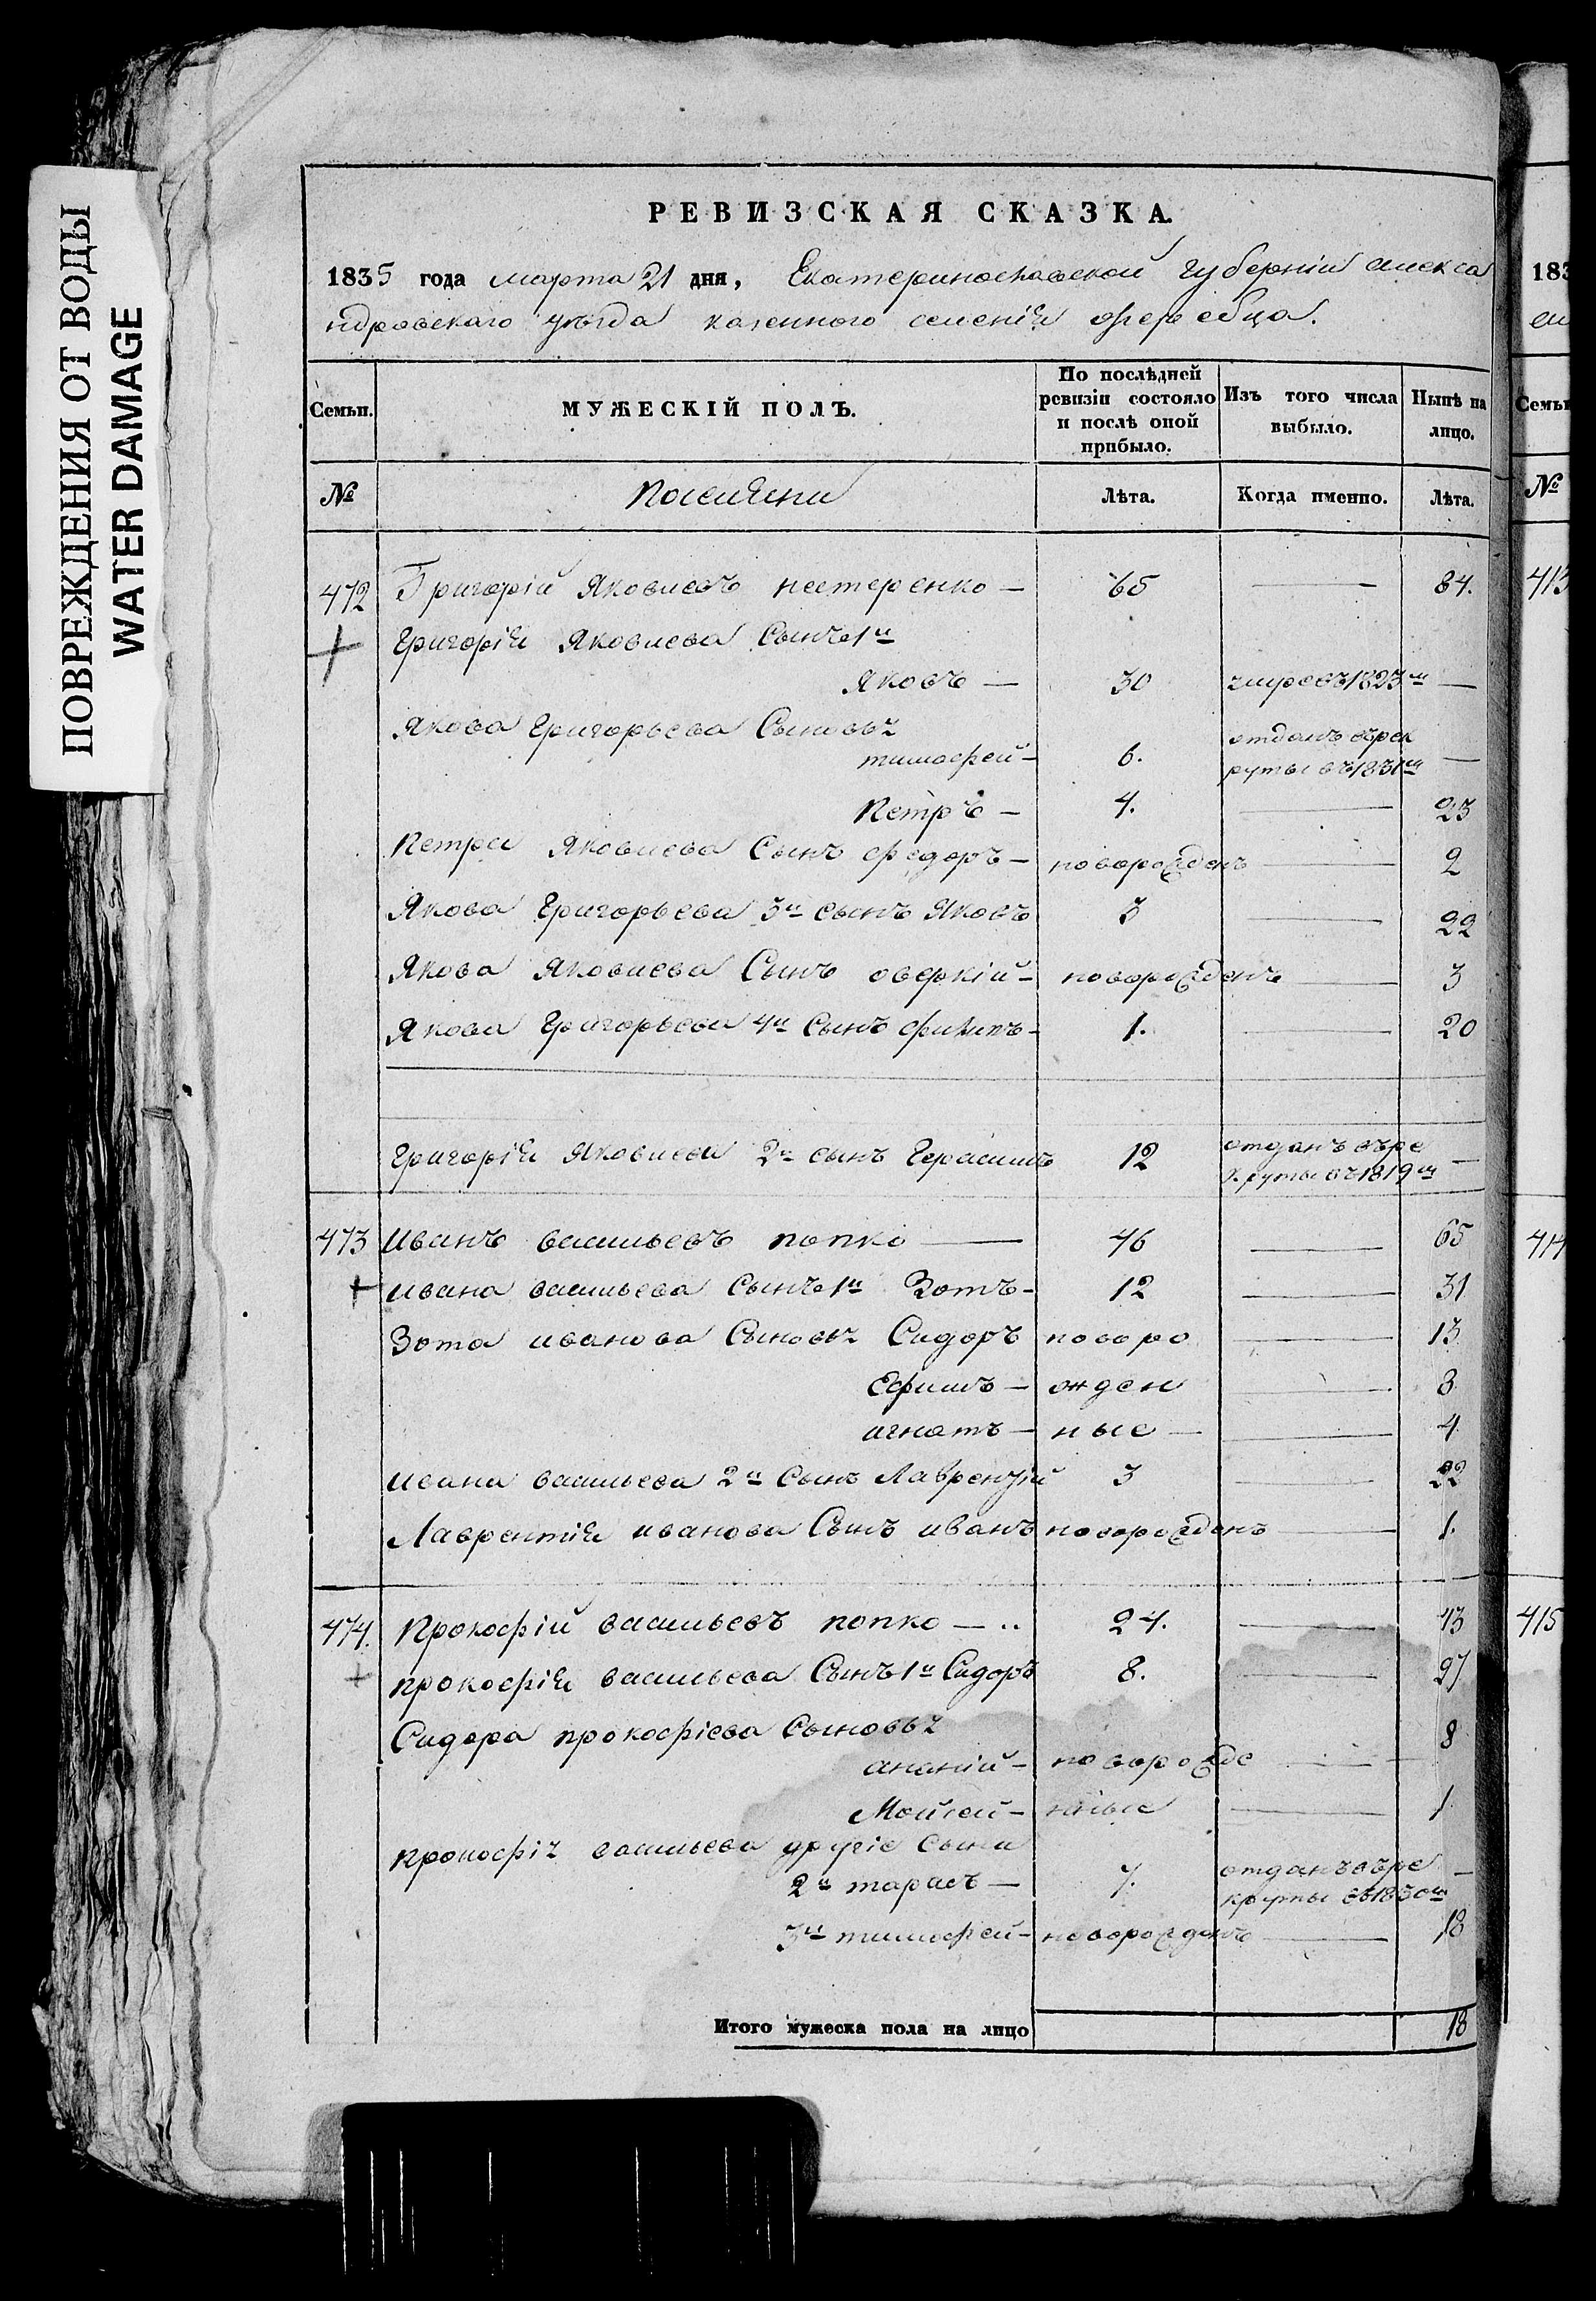 ПОВРЕЖДЕНИЯ ОТ ВОДЫ
WATER DAMAGE
РЕВИЗСКАЯ СКАЗКА.
1835 года марта 21 дня, Екатеринославской губерніи алекса
ндровскаго уѣзда казенного селенія жеребца.
Семьи.
МУЖЕСКІЙ ПОЛЪ.
По послѣдней ревизіи состояло и послѣ оной прибыло.
Изъ того числа выбыло.
Нынѣ на лицо.
№
поселяни
Лѣта.
Когда именно.
Лѣта.
472 Григорій Яковлевъ нестеренко — 65 — 84.
Григорія Яковлева Сынъ 1й
Яковъ — 30 умре въ 1823м —
Якова Григорьева Сыновья
тимофей — 6. отданъ въ рек
руты въ 1831м —
Петръ — 4. — 23
Петра Яковлева Сынъ федоръ — новорожденъ — 2
Якова Григорьева 3й сынъ Яковъ 3 — 22
Якова Яковлева Сынъ оверкій — новорожденъ — 3
Якова Григорьева 4й Сынъ филипъ — 1. — 20
Григорія Яковлева 2й сынъ Герасимъ 12 отданъ въ ре
круты въ 1819м —
473 Иванъ васильевъ попко — 46 — 65
ивана васильева Сынъ 1й Зотъ — 12 — 31
Зота иванова Сыновья Сидоръ новоро — 13
Ефимъ — жден — 8
игнатъ — ные — 4
ивана васильева 2й Сынъ Лаврентій 3 — 22
Лаврентія иванова Сынъ иванъ новорожденъ — 1.
474. Прокофій васильевъ попко — 24. — 43
прокофія васильева Сынъ 1й Сидоръ 8. — 27
Сидора прокофіева Сыновья
ананій — новорожде — 8
Мойсей — нные — 1
прокофія васильева другіе Сыни
2й тарасъ — 7. отданъ въ ре
круты въ 1830м —
3й тимофей — новорожденъ — 18
Итого мужеска пола на лицо 18
183
Семьи
№
413
414
415